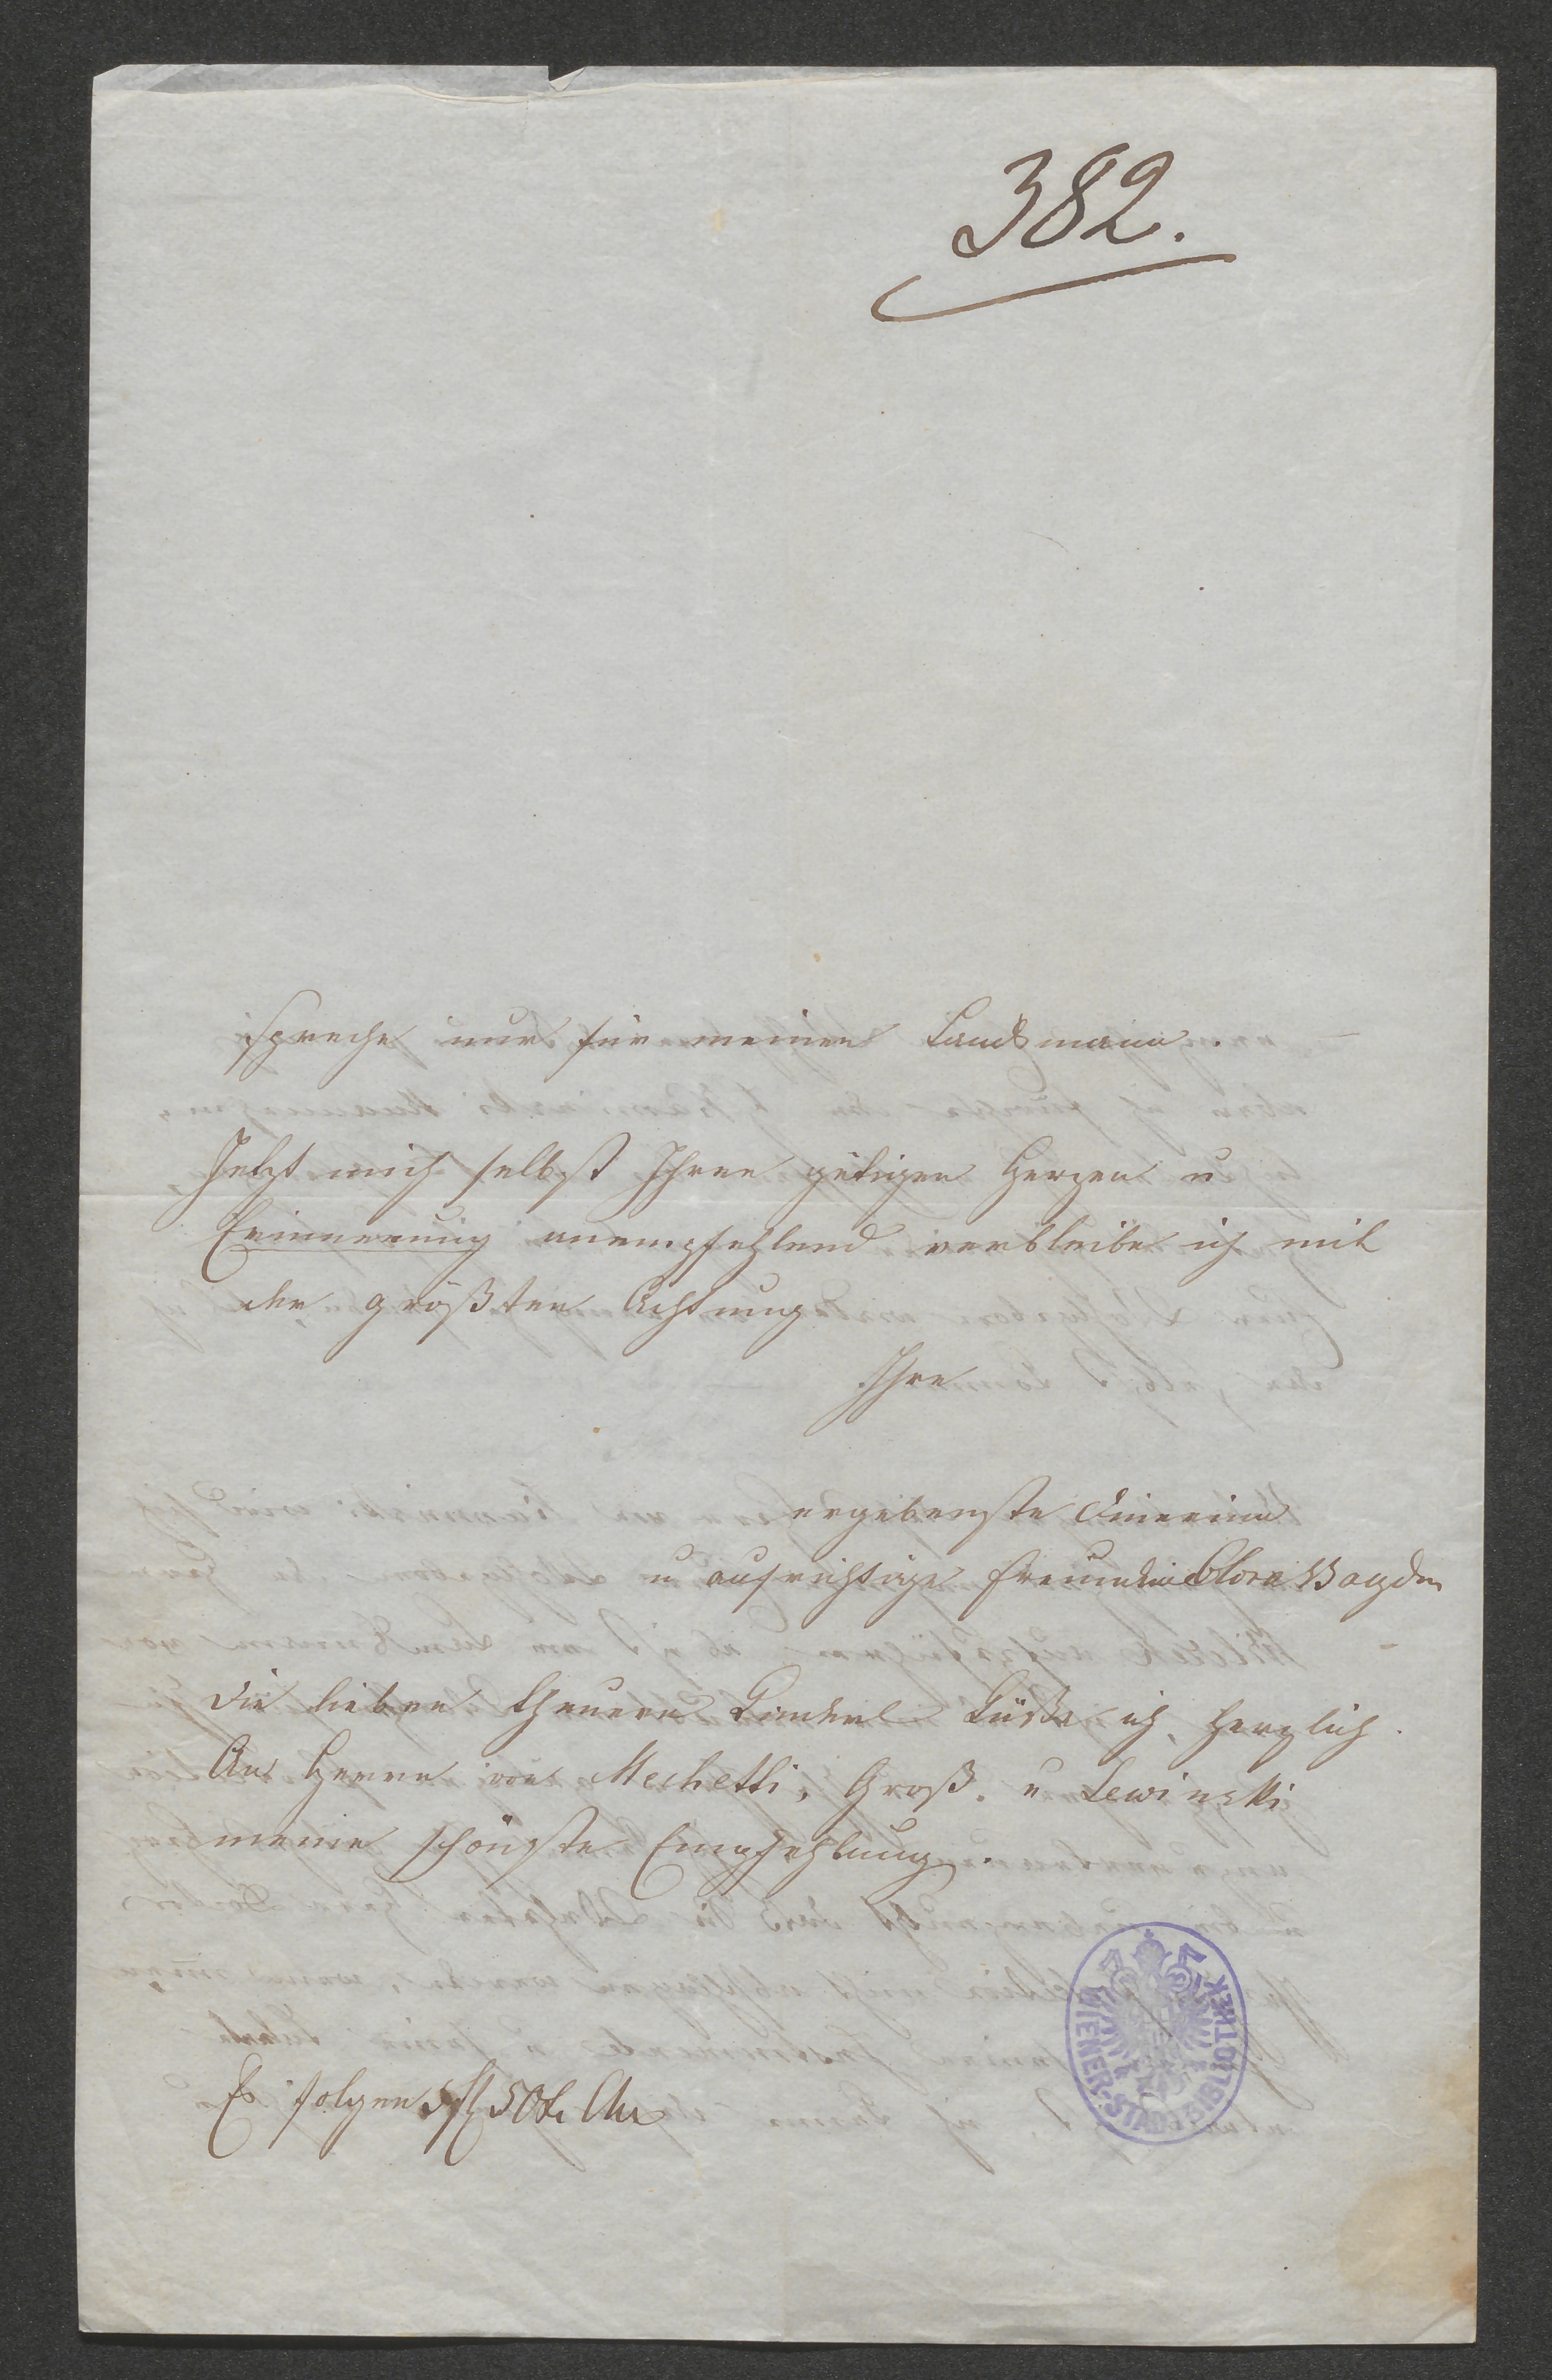 382.
spreche nur für meinen Landsmann.
Jetzt mich selbst Ihren gütigen Herzen u
Erinnerung anempfehlend verbleibe ich mit
der größten Achtung
Ihre
ergebenste Dienerin
u aufrichtige Freundin Clora Bayden
Die lieben theuern Kinderl küße ich herzlich.
An Herrn von Mechetti, Groß. u Lewinski
meine schönste Empfehlung.
Es folgen 5 fl 50 k
WIENER-STADTBIBLIOTHEK